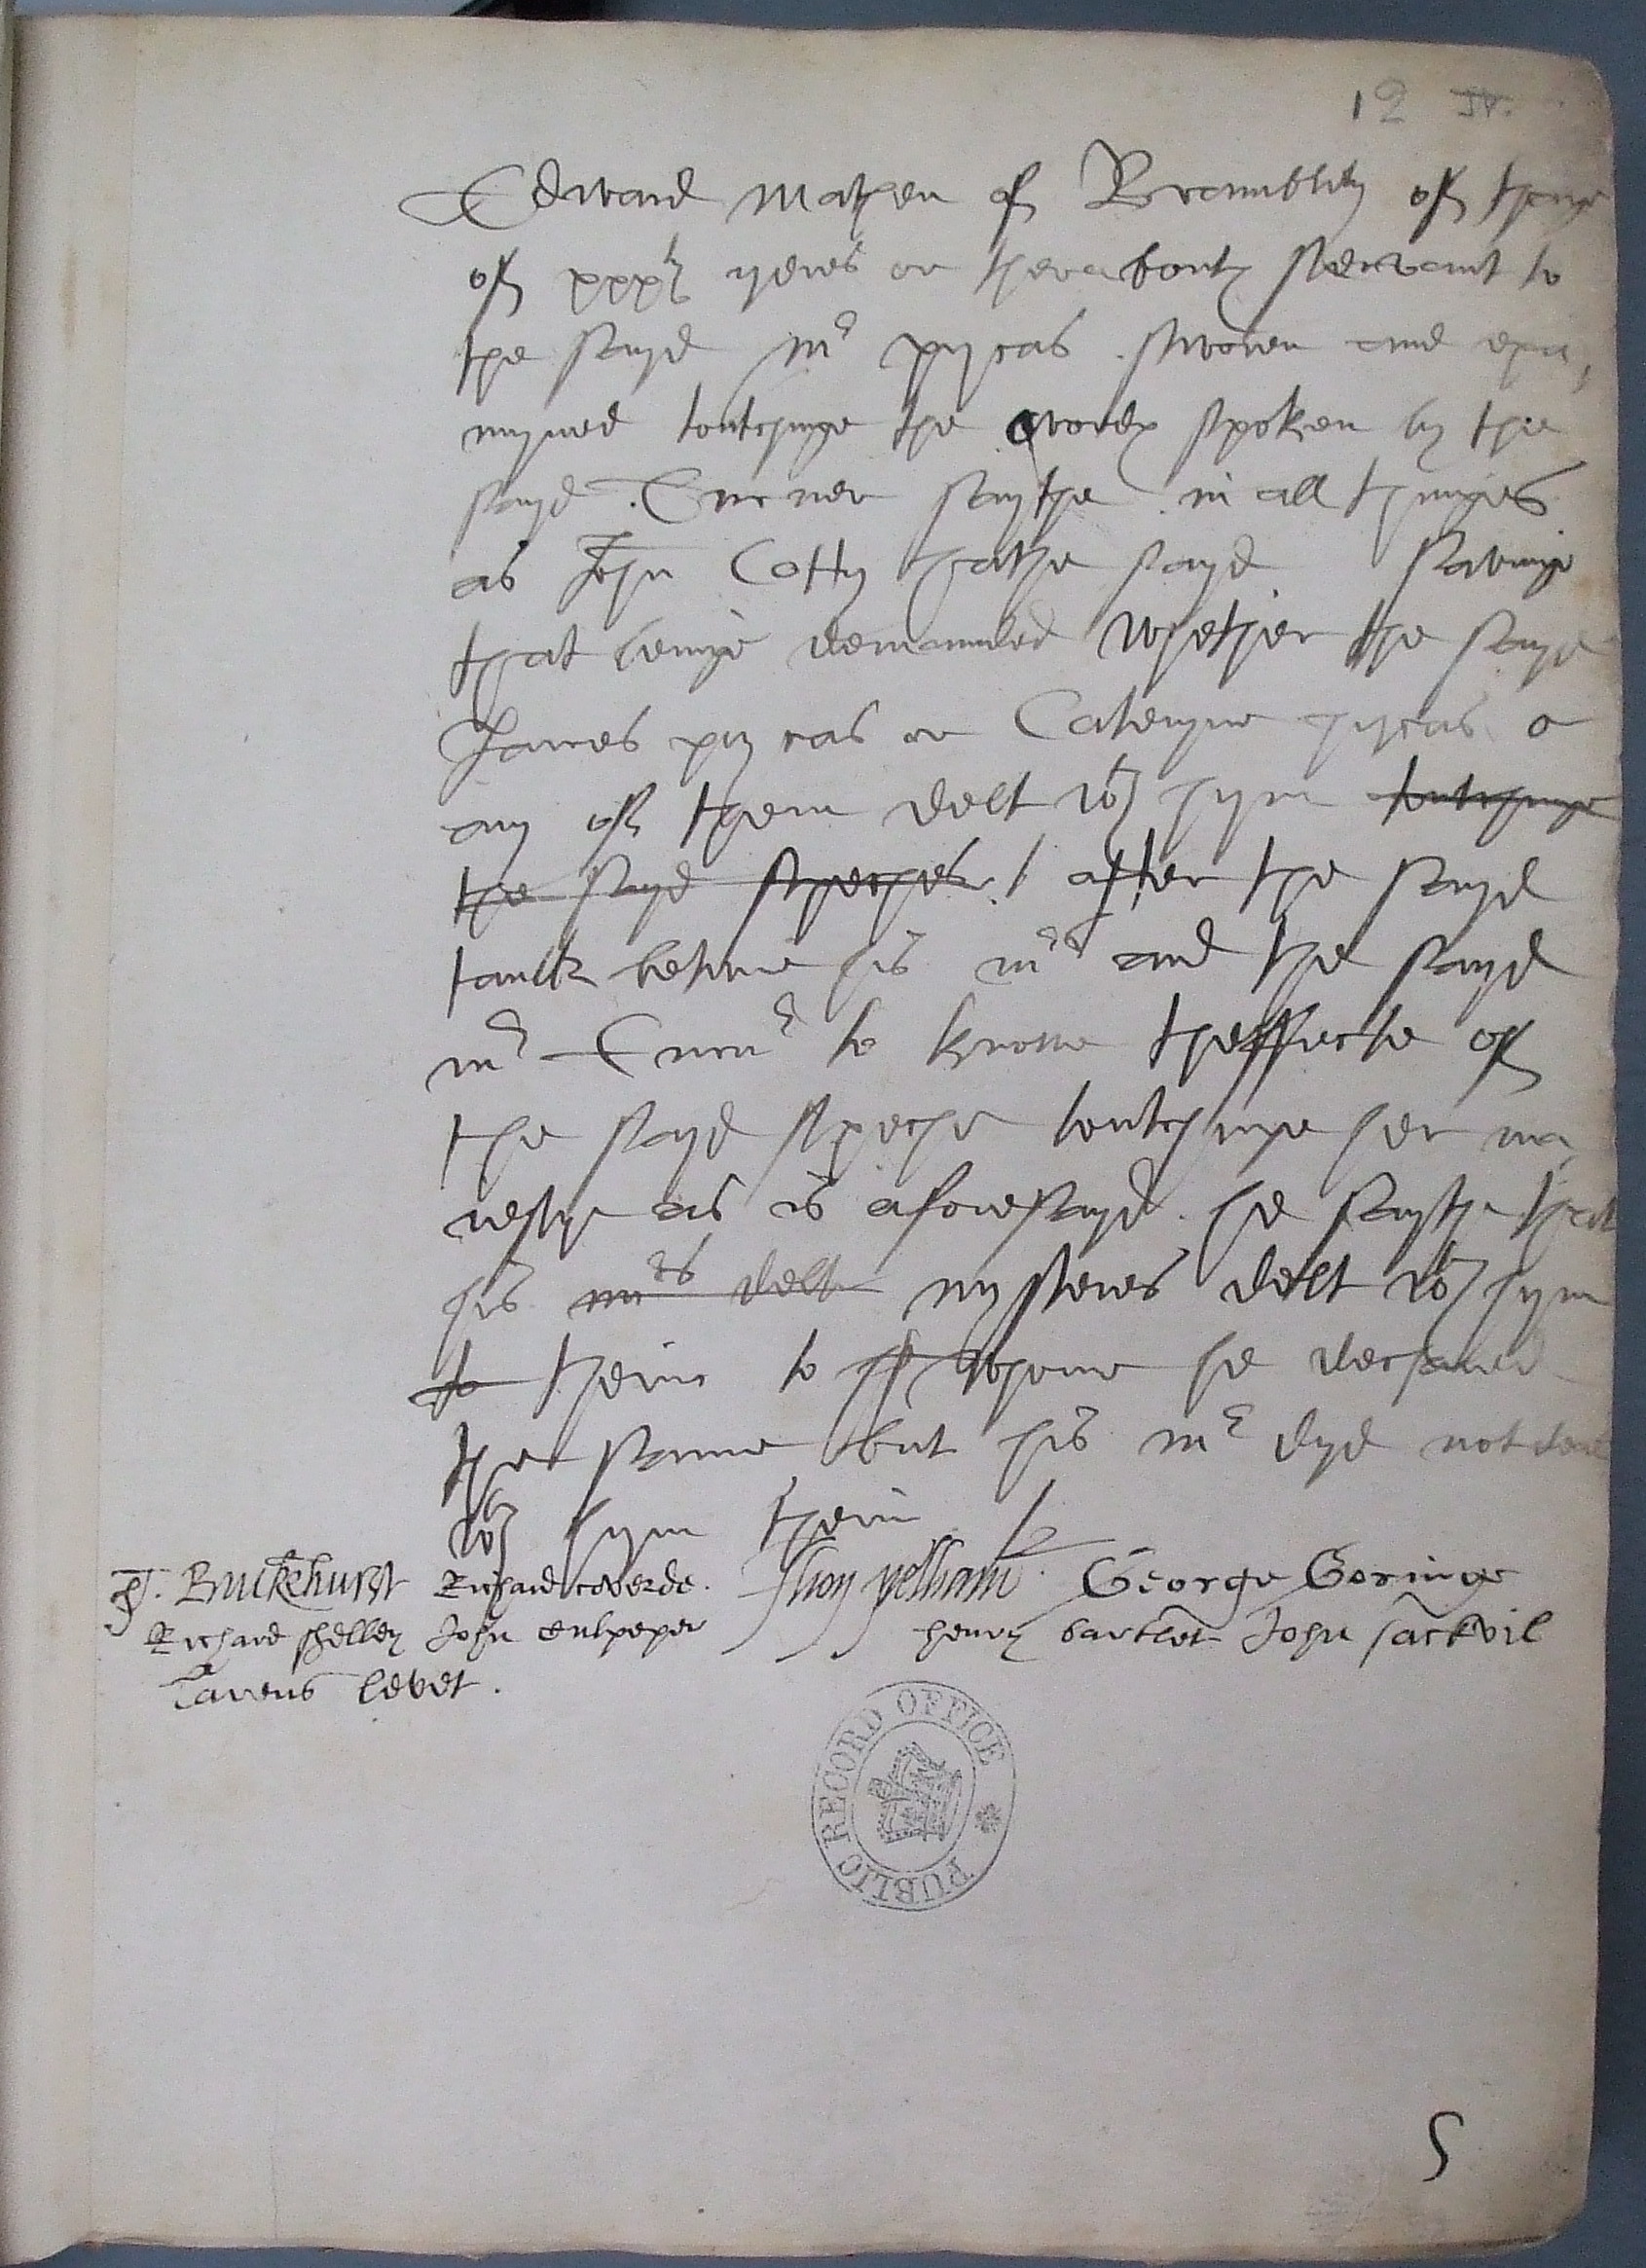 12 IV.
Edward Mathen of Brambilty of thage
of xxxty yeres or therabouts servant to
the sayd mr pycas sworen and exa,
myned toutchinge the words spoken by the
sayd Turner saythe in all thinges
as John Cotty hathe sayd savinge
that beinge demaunded whether the sayd
James pycas or Cateryne pycas o
any of them delt wth hym toutchinge
the sayd speches after the sayd
taulk betwne his mrs and the sayd
mr Turnr to knowe theffecte of
the sayd speche toutchinge her ma,
iestye as is aforesayd he saythe that
his mrs delt mysteres delt wth hym
to therin to whome he declared
the same but his mr dyd not deal
wth hym therin
T. Buckehurst Richard coverde. Thos pelham George Goringe
Richard shelley John culpeper henry bartlet John sackvil
Larens levet.
PUBLIC RECORD OFFICE
5